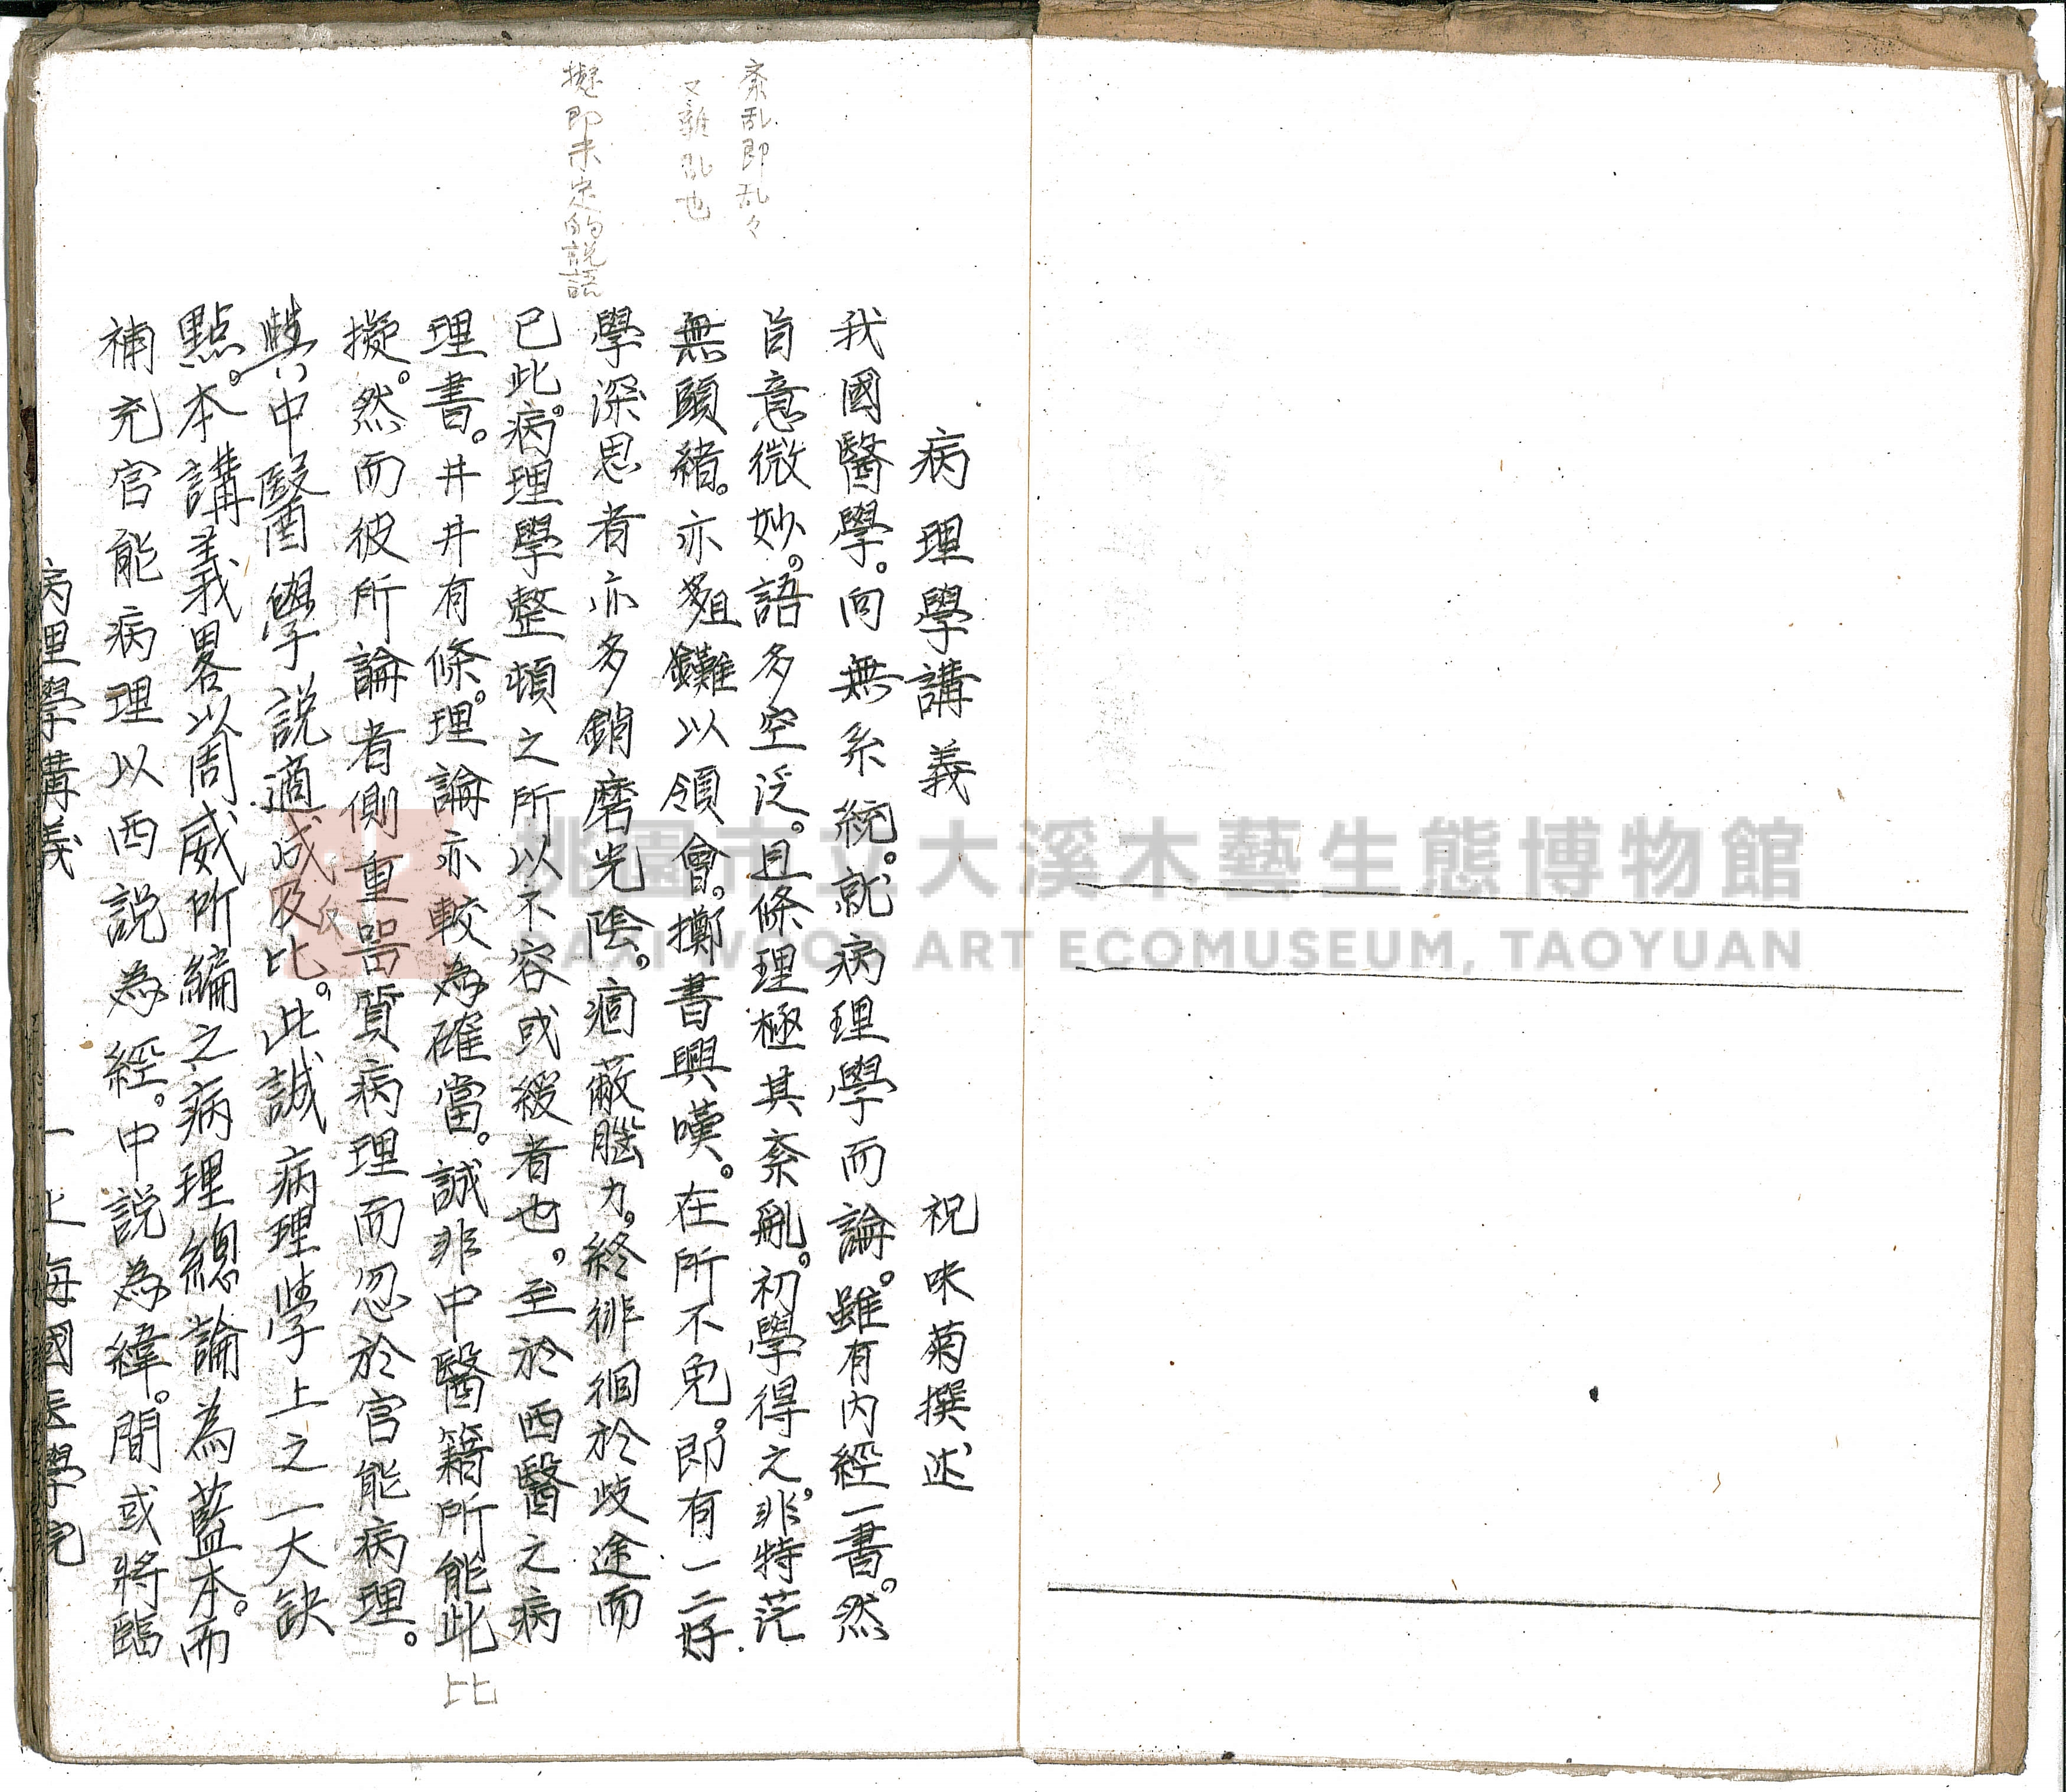 病理學講義
祝味菊撰述
我國醫學。向無系統。就病理學而論。雖有內經一書。然
旨意微妙。語多空泛。且條理極其紊亂。初學得之。非特茫
無頭緒。亦難以領會。擲書興嘆。在所不免。即有一二好
學深思者亦多銷磨光陰。痼蔽腦力。終徘徊於歧途而
已此。病理學整頓之所以不容或緩者也。至於西醫之病
理書。井井有條。理論亦較為確當。誠非中醫籍所能此
擬。然而彼所論者側重器質病理而忽於官能病理。
與中醫學說適成反比。此誠病理學上之一大缺
點。本講義畧以周威所編之病理總論為藍本。而
補充官能病理以西說為經。中說為緯。間或將臨
病理學講義 一 上海國医學院
紊乱即乱々
又雜乱也
擬即未定的説語
比
桃園市立大溪木藝生態博物館
DAXI WOOD ART ECOMUSEUM, TAOYUAN